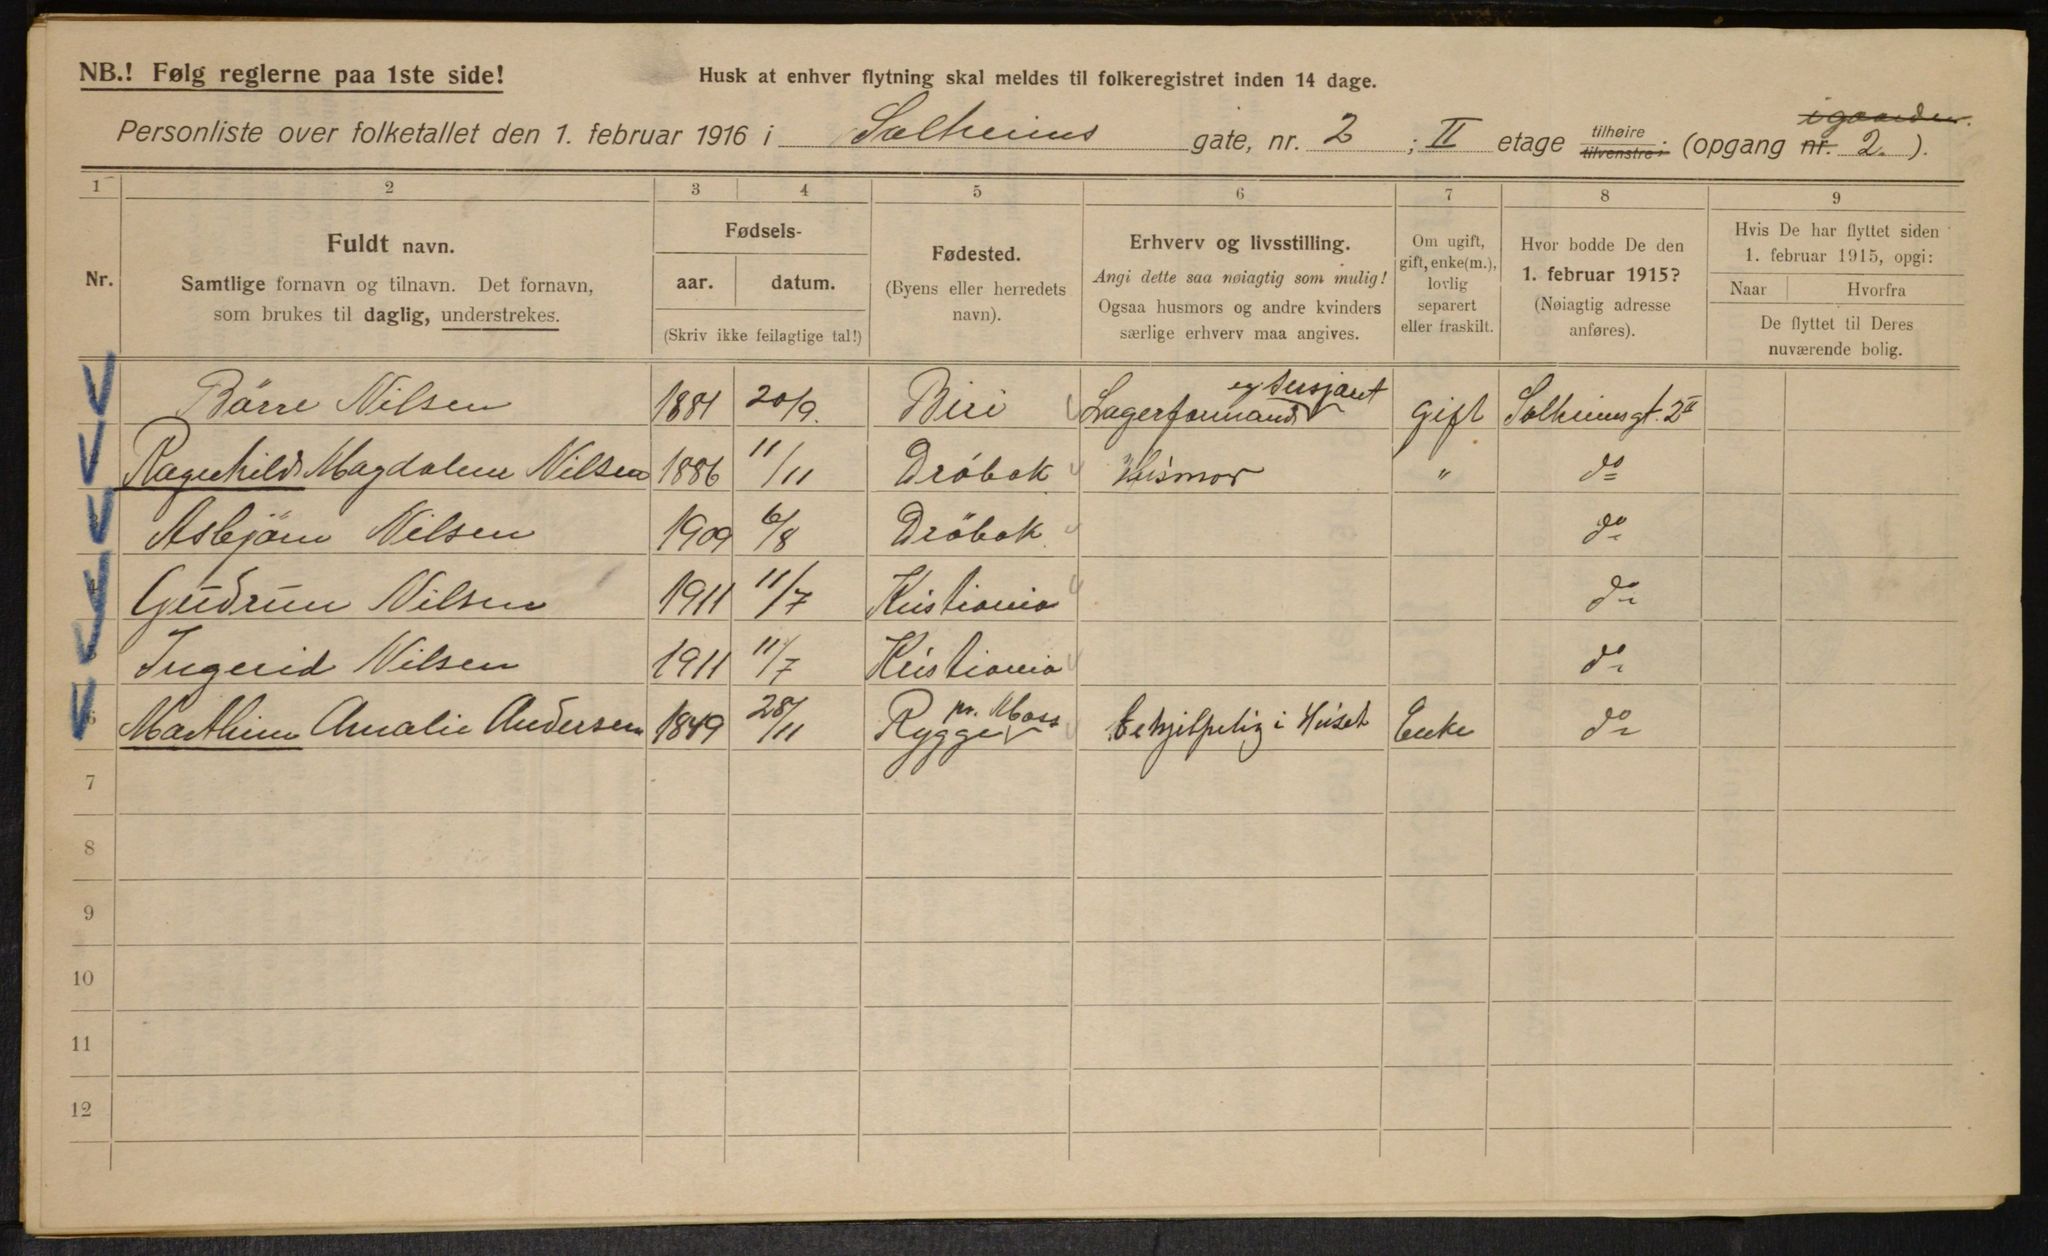 NB.! Følg reglerne paa 1ste side!
Husk at enhver flytning skal meldes til folkeregistret inden 14 dage.
i gaarden.
Personliste over folketallet den 1. februar 1916 i Solheims gate, nr. 2 ; II etage tilhøire tilvenstre; (opgang nr. 2. ).
1 2 3 4 5 6 7 8 9
Nr.
Fuldt navn.
Samtlige fornavn og tilnavn. Det fornavn,
som brukes til daglig, understrekes.
Fødsels-
aar. datum.
(Skriv ikke feilagtige tal!)
Fødested.
(Byens eller herredets
navn).
Erhverv og livsstilling.
Angi dette saa nøiagtig som mulig!
Ogsaa husmors og andre kvinders
særlige erhverv maa angives.
Om ugift,
gift, enke(m.),
lovlig
separert
eller fraskilt.
Hvor bodde De den
1. februar 1915?
(Nøiagtig adresse
anføres).
Hvis De har flyttet siden
1. februar 1915, opgi:
Naar Hvorfra
De flyttet til Deres
nuværende bolig.
Börre Nilsen 1881 20/9. Biri Lagerformand og Sersjant gift Solheimsgt. 2 II
Ragnhild Magdalene Nilsen 1886 11/11 Dröbak Husmor " do
3 Asbjörn Nilsen 1909 6/8 Dröbak do
4 Gudrun Nilsen 1911 11/7 Kristiania do
5 Ingerid Nilsen 1911 11/7 Kristiania do
6 Marthine Amalie Andersen 1849 28/11 Rygge pr. Moss behjelpelig i Huset Enke do
7
8
9
10
11
12